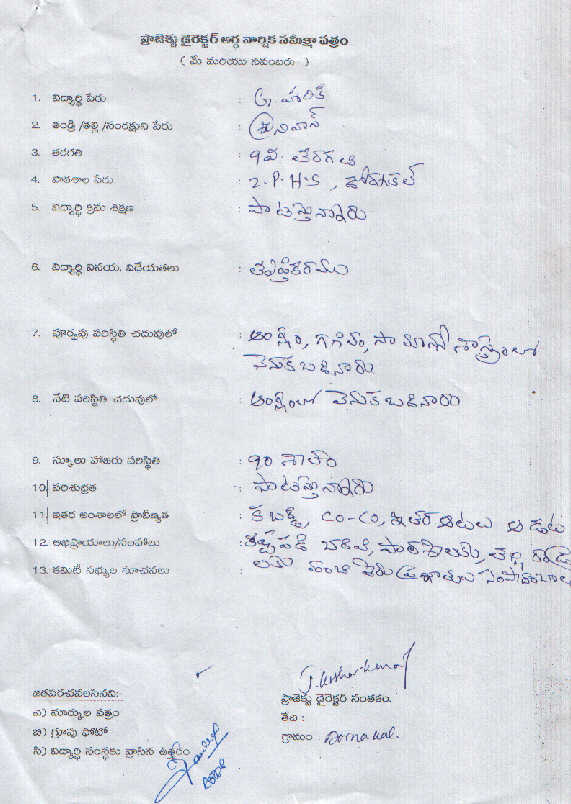 ప్రాజెక్టు డైరెక్టర్ అర్ధ వార్షిక సమీక్షా పత్రం
( మే మరియు నవంబరు )
1. విద్యార్థి పేరు : G. హరిక్
2. తండ్రి /తల్లి /సంరక్షకుని పేరు : శ్రీనివాస్
3. తరగతి : 9వ. తరగతి
4. పాఠశాల పేరు : Z.P.H.S, డోర్నకల్
5. విద్యార్థి క్రమ శిక్షణ : పాటిస్తున్నారు
6. విద్యార్థి వినయ, విధేయతలు : తృప్తికరము
7. పూర్వపు పరిస్థితి చదువులో : ఆంగ్లం, గణితం, సామాన్య శాస్త్రంలో
వెనుకబడినారు
8. నేటి పరిస్థితి చదువులో : ఆంగ్లంలో వెనుకబడినారు
9. స్కూలు హాజరు పరిస్థితి : 90 శాతం
10) పరిశుభ్రత : పాటిస్తున్నారు
11) ఇతర అంశాలలో ప్రావీణ్యత : కబడ్డి, CO-CO, ఇతర ఆటలు ఆడుట
12. అభిప్రాయాలు/సలహాలు : కష్టపడి చదివి, పాఠశాలకు, తల్లి
13. కమిటీ సభ్యుల సూచనలు : లకు మంచి పేరు
జతపరచవలసినవి:
ఎ) మార్కుల పత్రం
బి) గ్రూపు ఫోటో
సి) విద్యార్థి సంస్థకు వ్రాసిన ఉత్తరం
ప్రాజెక్టు డైరెక్టర్ సంతకం.
తేది :
గ్రామం : Dornakal.